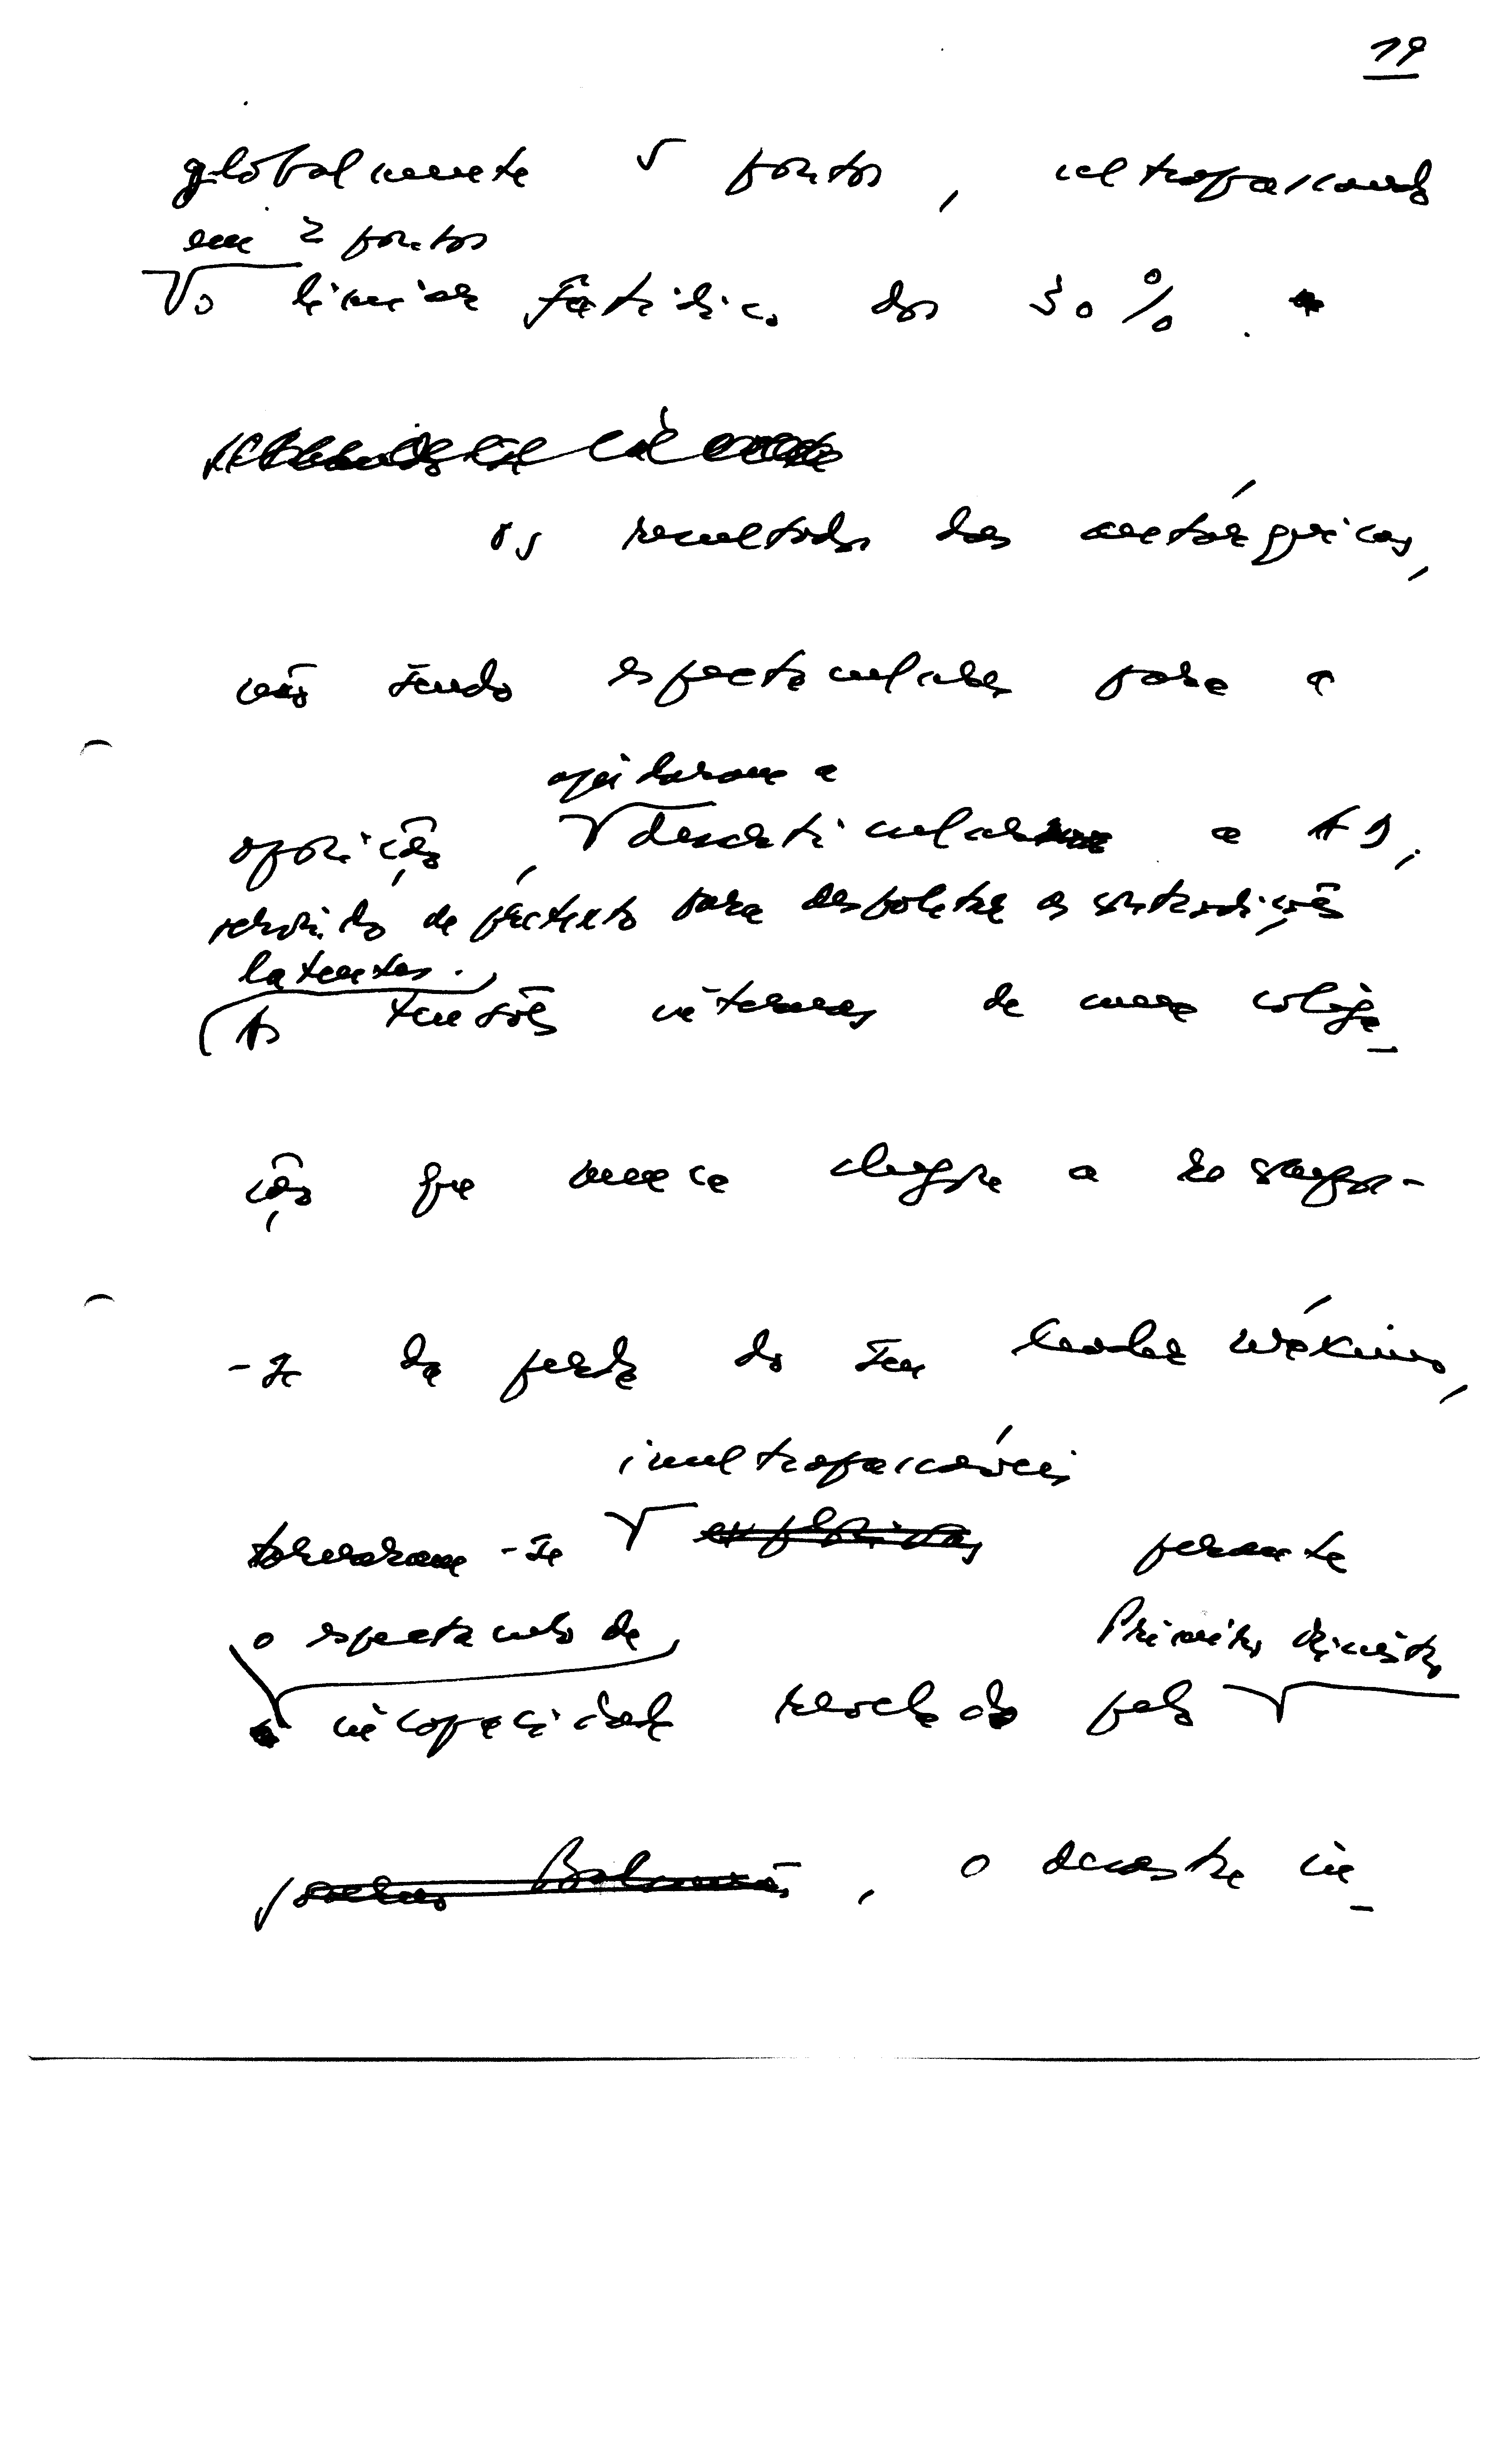 19
globalmente 5 pontos, ultrapassando
em 2 pontos
o limiar fatídico dos 30%.
Os resultados das autárquicas,
não sendo espectaculares para a
ajudaram a
oposição, desarticular a AD,
servindo de pretexto para despoletar as contradições
latentes.
As tensões internas de uma coliga-
ção que nunca chegou a recompor-
-se da perda do seu leader máximo,
inultrapassáveis
tornaram-se explosivas perante
o espectáculo de
incapacidade revelado pelo
Primeiro Ministro
Balsemão, o desastre